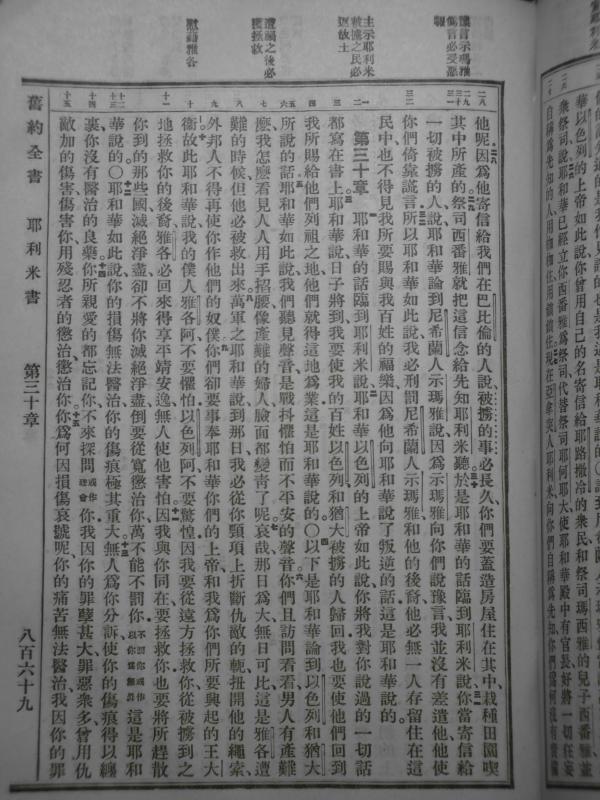 華以色列的上帝如此說你曾用自己的名寄信給耶路撒冷的衆民和祭司瑪西雅的兒子西番雅並
衆祭司說耶和華已經立你西番雅爲祭司代替祭司耶何耶大使耶和華殿中有官長好將一切狂妄
謊言示瑪雅
僞言必受懲
報
主示耶利米
被擄之民必
返故土
遭禍之後必
獲拯救
慰藉雅各
他呢因爲他寄信給我們在巴比倫的人說被擄的事必長久你們要蓋造房屋住在其中栽種田園喫
其中所產的祭司西番雅就把這信念給先知耶利米聽於是耶和華的話臨到耶利米說你當寄信給
一切被擄的人說耶和華論到尼希蘭人示瑪雅說因爲示瑪雅向你們說豫言我並沒有差遣他他使
你們倚靠謊言所以耶和華如此說我必刑罰尼希蘭人示瑪雅和他的後裔他必無一人存留住在這
民中也不得見我所要賜與我百姓的福樂因爲他向耶和華說了叛逆的話這是耶和華說的
第三十章 耶和華的話臨到耶利米說耶和華以色列的上帝如此說你將我對你說過的一切話
都寫在書上耶和華說日子將到我要使我的百姓以色列和猶大被擄的人歸回我也要使他們回到
我所賜給他們列祖之地他們就得這地爲業這是耶和華說的〇以下是耶和華論到以色列和猶大
所說的話耶和華如此說我們聽見聲音是戰抖懼怕而不平安的聲音你們且訪問看看男人有產難
麽我怎麽看見人人用手招腰像產難的婦人臉面都變靑了呢哀哉那日爲大無日可比這是雅各遭
難的時候但他必被救出來萬軍之耶和華說到那日我必從你頸項上折斷仇敵的軛扭開他的繩索
外邦人不得再使你作他們的奴僕你們卻要事奉耶和華你們的上帝和我爲你們所要興起的王大
衞故此耶和華說我的僕人雅各阿不要懼怕以色列阿不要驚惶因我要從遠方拯救你從被擄到之
地拯救你的後裔雅各必回來得享平靖安逸無人使他害怕因我與你同在要拯救你也要將所趕散
你到的那些國滅絕淨盡卻不將你滅絕淨盡倒要從寬懲治你萬不能不罰你不罰你或作以你爲無罪這是耶和
華說的〇耶和華如此說你的損傷無法醫治你的傷痕極其重大無人爲你分訴使你的傷痕得以纏
裹你沒有醫治的良藥你所親愛的都忘記你不來探問或作理會你我因你的罪孽甚大罪惡衆多曾用仇
敵加的傷害傷害你用殘忍者的懲治懲治你你爲何因損傷哀號呢你的痛苦無法醫治我因你的罪
舊約全書 耶利米書 第三十章 八百六十九